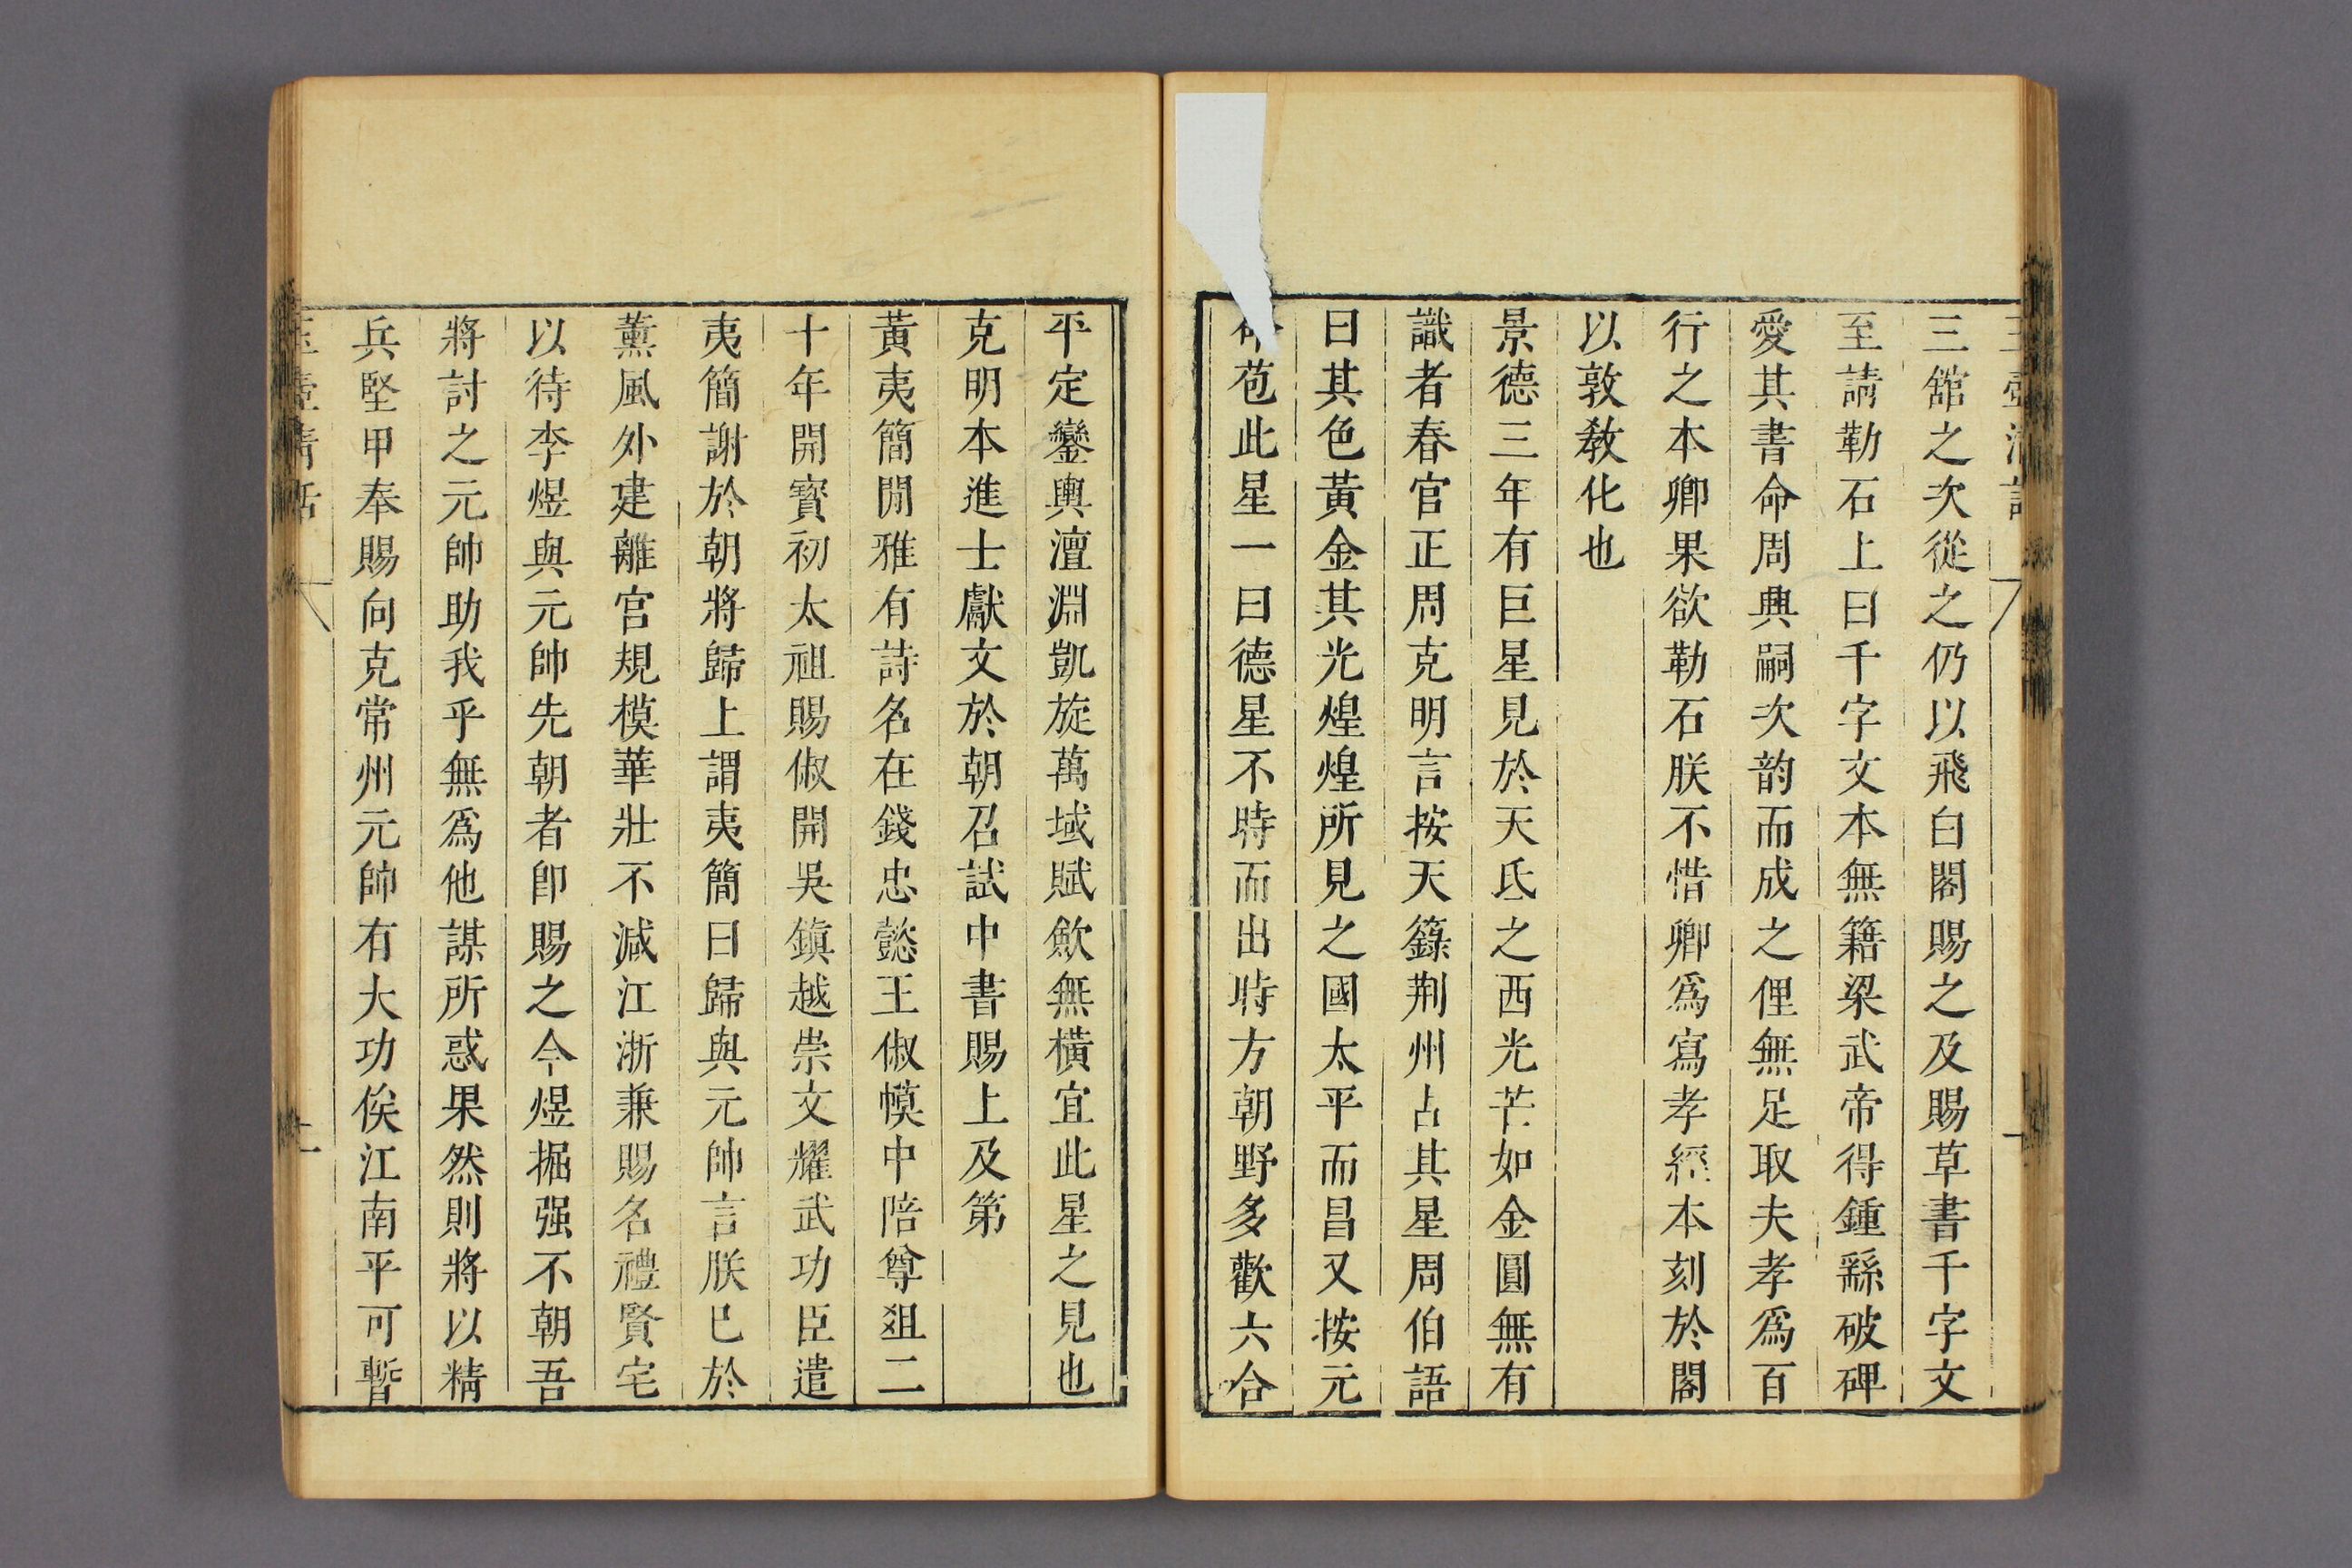 三舘之次從之仍以飛白閣賜之及賜草書千字文
至請勒石上曰千字文本無籍梁武帝得鍾繇破碑
愛其書命周興嗣次韵而成之俚無足取夫孝爲百
行之本卿果欲勒石朕不惜卿爲寫孝經本刻於閣
以敦敎化也
景德三年有巨星見於天氐之西光芒如金圓無有
識者春官正周克明言按天籙荆州占其星周伯語
曰其色黃金其光煌煌所見之國太平而昌又按元
命苞此星一曰德星不時而出時方朝野多歡六合
平定鑾輿澶淵凱旋萬域賦歛無橫宜此星之見也
克明本進士獻文於朝召試中書賜上及第
黃夷簡閒雅有詩名在錢忠懿王俶幙中陪尊俎二
十年開寳初太祖賜俶開吳鎭越崇文耀武功臣遣
夷簡謝於朝將歸上謂夷簡曰歸與元帥言朕已於
薰風外建離宮規模華壯不減江浙兼賜名禮賢宅
以待李煜與元帥先朝者卽賜之今煜掘强不朝吾
將討之元帥助我乎無爲他謀所惑果然則將以精
兵堅甲奉賜向克常州元帥有大功俟江南平可暫
玉壺淸話 二